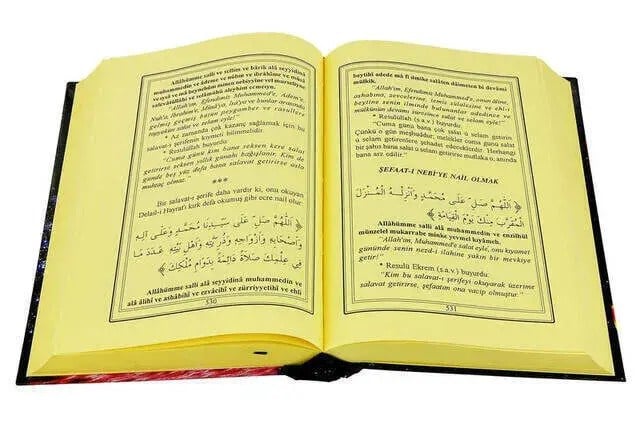 Allâhümme salli ve sellim ve bârik alâ seyyidinâ
muhammedin ve âdeme ve nûhin ve ibrâhîme ve mûsâ
ve îysâ ve mâ beynehüm minen nebiyyîne vel murselîyne
salavâtüllâhi ve selâmühû aleyhim ecmeıyn.
"Allah'ım, Efendimiz Muhammed'e, Adem'e,
Nuh'a, İbrahim'e, Musa'ya, İsa'ya ve bunlar arasında
gelmiş geçmiş bütün peygamber ve rasüllere
salat ve selam eyle!"
* Az zamanda çok kazanç sağlamak için bu
salavat-ı şerifenin kıymeti bilinmelidir.
* Resulullah buyurdu:
"Cuma günü bana seksen kere salat
getirirse seksen yıllık günahı bağışlanır. Kim de
günde beş yüz defa bana salavat getirirse aslo
muhtaç olmaz."
***
Bir salavat-ı şerife daha vardır ki, onu okuyan
Delail-i Hayrat'ı kırk defa okumuş gibi ecre nail olur:
اَللّٰهُمَّ صَلِّ عَلٰى سَيِّدِنَا مُحَمَّدٍ وَعَلٰى اٰلِهِ
وَاَصْحَابِهِ وَاَزْوَاجِهِ وَذُرِّيَّتِهِ وَاَهْلِ بَيْتِهِ عَدَدَ مَا
فِي عِلْمِكَ صَلَاةً دَائِمَةً بِدَوَامِ مُلْكِكَ
Allâhümme salli alâ seyyidinâ muhammedin ve
alâ âlihî ve ashâbihî ve ezvâcihî ve zürriyyetihî ve ehli
530
beytihî adede mâ fî ılmike salâten dâimeten bi devâmi
mülkik.
"Allah'ım, Efendimiz Muhammed'e, onun âline,
ashabına, zevcelerine, temiz sülalesine ve ehl-i
beytine senin ilminde bulunanlar adedince ve
mülkünün devamı süresince salat eyle!"
* Resulüllah (s.a.v) buyurdu:
"Cuma günü bana çok salat ü selam getirin
Çünkü o gün meşhuddur, melekler hazır olurlar ve
salat ü selam getirenlere şehadet edeceklerdir. Herhangi
bir şahıs bana salat ü selam getirirse mutlaka o, anında
bana arz edilir."
ŞEFAAT-I NEBİ'YE NAİL OLMAK
اَللّٰهُمَّ صَلِّ عَلٰى مُحَمَّدٍ وَاَنْزِلْهُ الْمُنْزَلَ
الْمُقَرَّبَ مِنْكَ يَوْمَ الْقِيَامَةِ
Allâhümme salli alâ muhammedin ve enzilhül
münzelel mukarrabe minke yevmel kıyâmeh.
"Allah'ım, Muhammed'e salat eyle, onu kıyamet
gününde senin nezd-i ilahine yakin bir mevkiye
getir!"
* Resulü Ekrem (s.a.v.) buyurdu:
"Kim bu salavat-ı şerifeyi okuyarak üzerime
salavat getirirse, şefaatım ona vacip olmuştur."
531